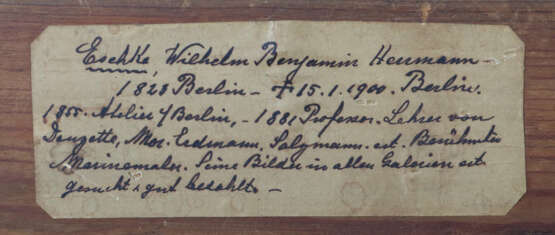 Eschke, Wilhelm Benjamin Hermann -
1823 Berlin - † 15.1.1900. Berlin.
1855. Atelier i/Berlin, - 1881 Professor. Lehrer von
Douzette, Mor. Erdmann, Salzmann. ect. Berühmter
Marinemaler. Seine Bilder in allen Galerien ect
gesucht & gut bezahlt. -